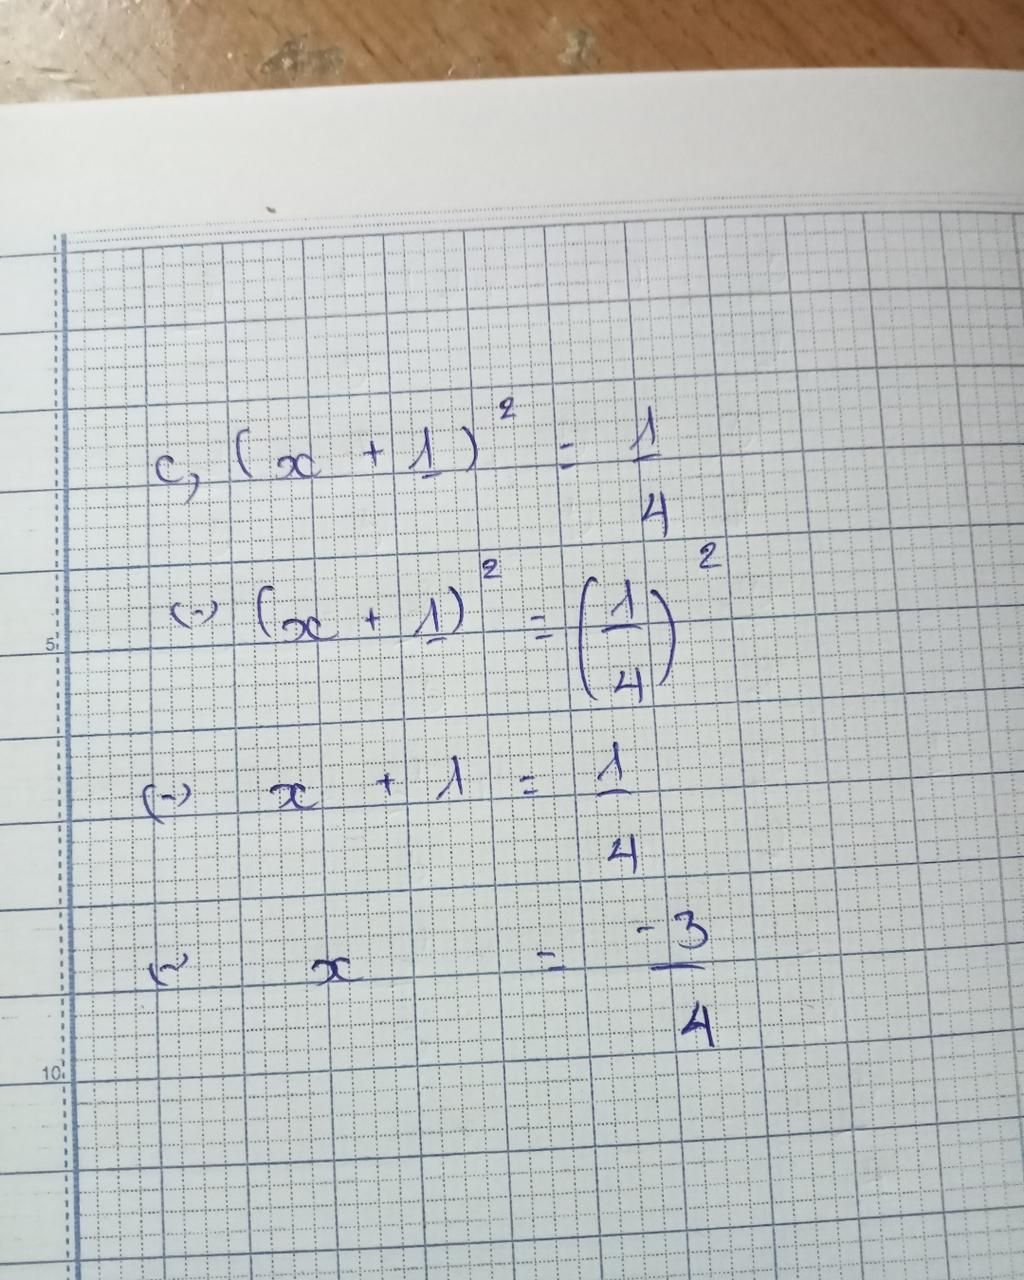 c, (x + 1)² = 1/4
(-) (x + 1)² = (1/4)²
(-) x + 1 = 1/4
(-) x = -3/4
5
10